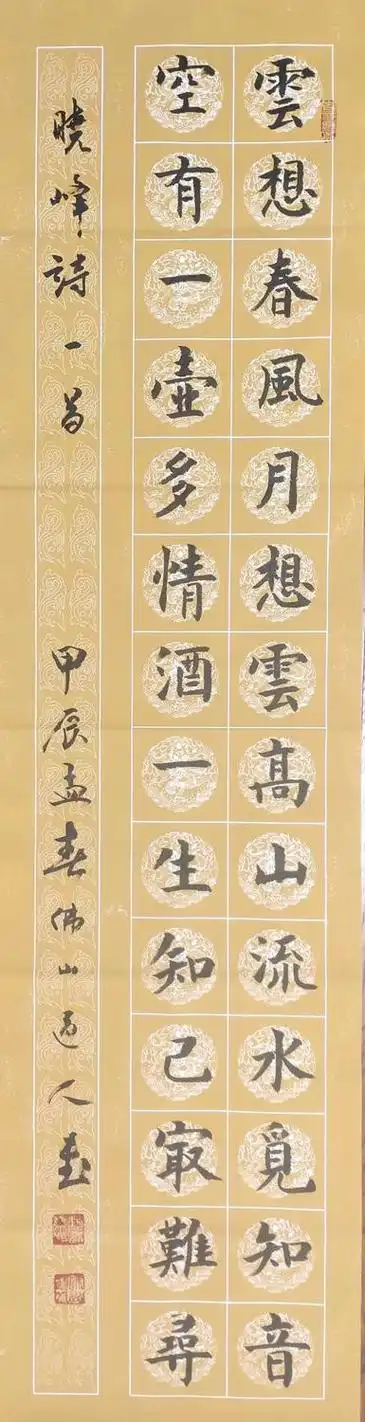 雲想春風月想雲高山流水覓知音
空有一壺多情酒一生知己㝡難尋
曉峰詩一首
甲辰孟春佛山道人書